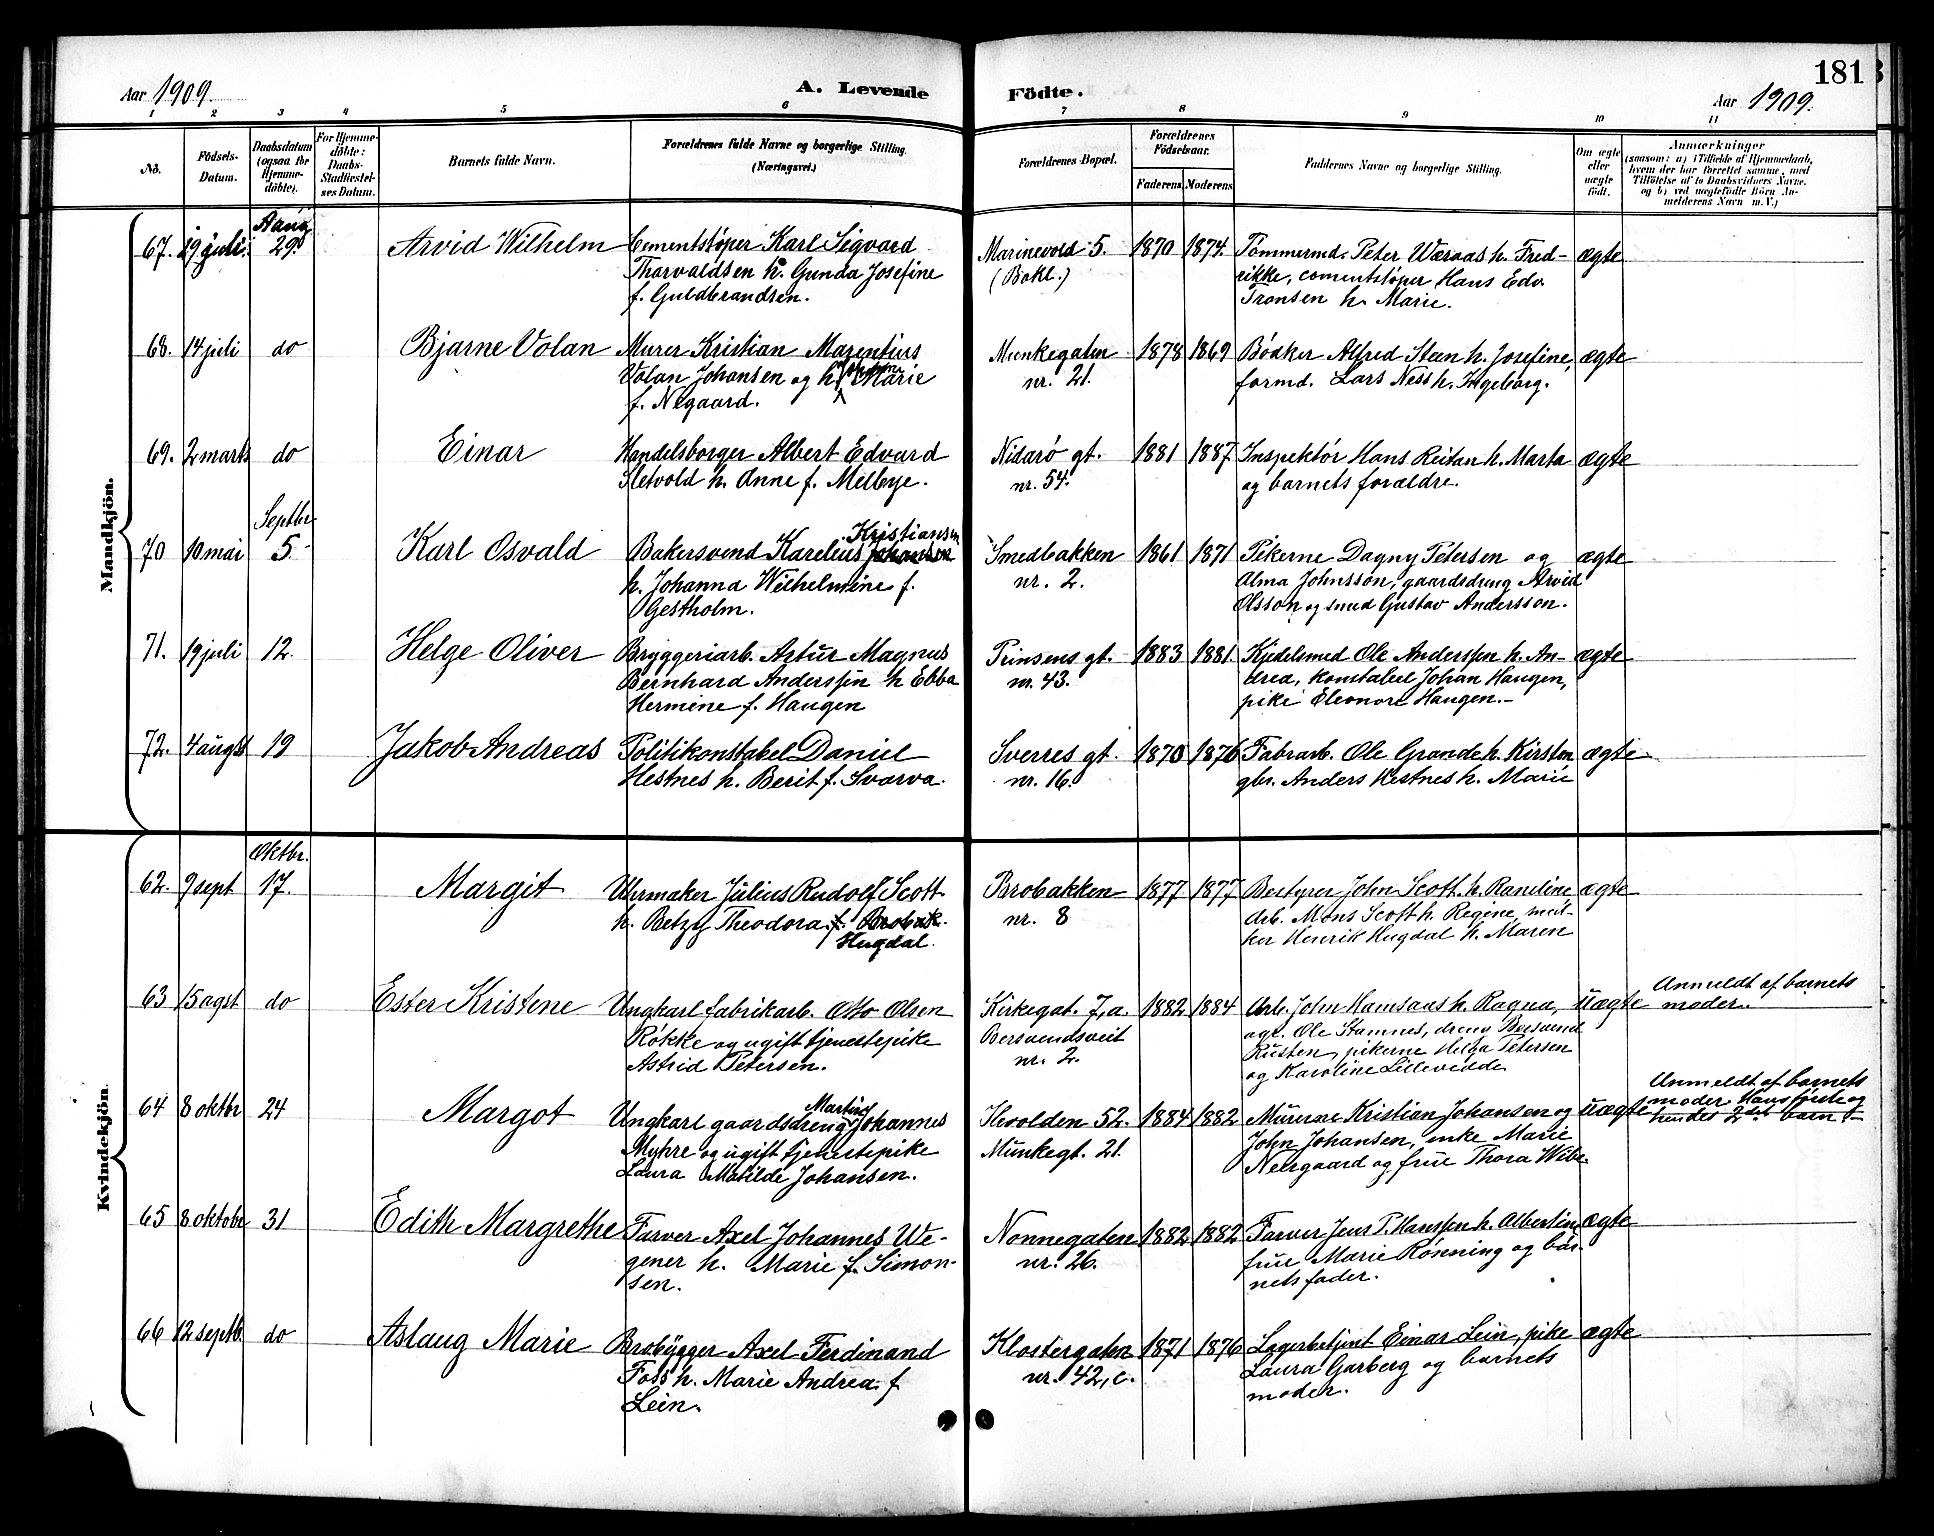 181
Aar 1909.
A. Levende
Födte.
Aar 1909.
1 2 3 4 5 6 7 8 9 10 11
No.
Födsels-
Datum.
Daabsdatum
(ogsaa for
Hjemme-
döbte).
For Hjemme-
döbte:
Daabs-
Stadfæstel-
ses Datum.
Barnets fulde Navn.
Forældrenes fulde Navne og borgerlige Stilling.
(Næringsvei.)
Forældrenes Bopæl.
Forældrenes
Födselsaar.
Faderens
Moderens
Faddernes Navne og borgerlige Stilling.
Om ægte
eller
uægte
født.
Anmærkninger
(saasom: a) i Tilfælde af Hjemmedaab,
hvem der har forrettet samme, med
Tilföielse af to Daabsvidners Navne.
og b) ved uægtefödte Börn An-
melderens Navn m. V.)
Mandkjön.
67. 19 juli Aaug. 29. Arvid Wilhelm
Cementstøper Karl Sigvard
Thorvaldsen h. Gunda Josefine
f. Guldbrandsen.
Marinevold 5.
(Bakl.)
1870 1874.
Tømmermd. Peter Wæraas h. Fred-
rikke, cementstøper Hans Edv.
Tronsen h. Marie.
ægte
68. 14 juli do Bjarne Volan
Murer Kristian Marentius
Volan Johansen og h. Marie
f. Negaard.
Munkegaten
nr. 21.
1878 1869
Bødker Alfred Steen h. Josefine,
formd. Lars Ness h. Ingeborg.
ægte
69. 2 marts do Einar
Handelsborger Albert Edvard
Sletvold h. Anne f. Melbye.
Nidarø gt.
nr. 54.
1881 1887
Inspektør Hans Reitan h. Marta
og barnets forældre.
ægte
70 10 mai Septbr. 5. Karl Osvald
Kristiansen
Bakersvend Karelius Johansen
h. Johanna Wilhelmine f.
Gestholm.
Smedbakken
nr. 2.
1861 1871
Pikerne Dagny Petersen og
Alma Johnsson, gaardsdreng Arvid
Olsson og smed Gustav Andersson.
ægte
71. 19 juli 12. Helge Oliver
Bryggeriarb. Artur Magnus
Bernhard Anderssen h Ebba
Hermine f. Haugen
Prinsens gt.
nr. 43.
1883 1881
Kjedelsmed Ole Anderssen h. An-
drea, konstabel Johan Haugen,
pike Eleonore Haugen.
ægte
72. 4 augst 19 Jakob Andreas
Politikonstabel Daniel
Hestnes h. Berit f. Svarva.
Sverres gt.
nr. 16.
1870 1876
Fabrarb. Ole Grande h. Kirsten
gbr. Anders Hestnes h. Marie
ægte
Kvindekjön.
62. 9 sept Oktbr. 17. Margit
Uhrmaker Julius Rudolf Scott
h. Betzy Theodora f. Brobak.
Hugdal.
Brobakken
nr. 8
1877 1877
Bestyrer John Scott h. Randine
Arb. Mons Scott h. Regine, møl-
ker Henrik Hugdal h. Maren
ægte
63 15 agst. do Ester Kristene
Ungkarl fabrikarb. Otto Olsen
Røkke og ugift tjenestepike
Astrid Petersen.
Kirkegat. 7, a.
Bersvendsveit
nr. 2.
1882 1884
Arb. John Hamsaas h. Ragna,
agt. Ole Stamnes, dreng Bersvend
Rusten, pikerne Helga Petersen
og Karoline Lillevedde
uægte
Anmeldt af barnets
moder.
64 8 oktbr 24 Margot
Martin
Ungkarl gaardsdreng Johannes
Myhre og ugift tjenestepike
Laura Matilde Johansen.
Ilevolden 52.
Munkegt. 21.
1884 1882
Murerne Kristian Johansen og
John Johansen, enke Marie
Neergaard og frue Thora Wibe
uægte
Anmeldt af barnets
moder Hans første og
hendes 2det barn
65 8 oktobr 31 Edith Margrethe
Farver Axel Johannes We-
gener h. Marie f. Simon-
sen.
Nonnegaten
nr. 26.
1882 1882
Farver Jens P. Hanssen h. Albertine
frue Marie Rønning og bar-
nets fader.
ægte
66 12 septb. do Aslaug Marie
Brobygger Axel Ferdinand
Foss h. Marie Andrea f.
Lein.
Klostergaten
nr. 42, c.
1871 1876
Lagerbetjent Einar Lein, pike
Laura Garberg og barnets
moder.
ægte